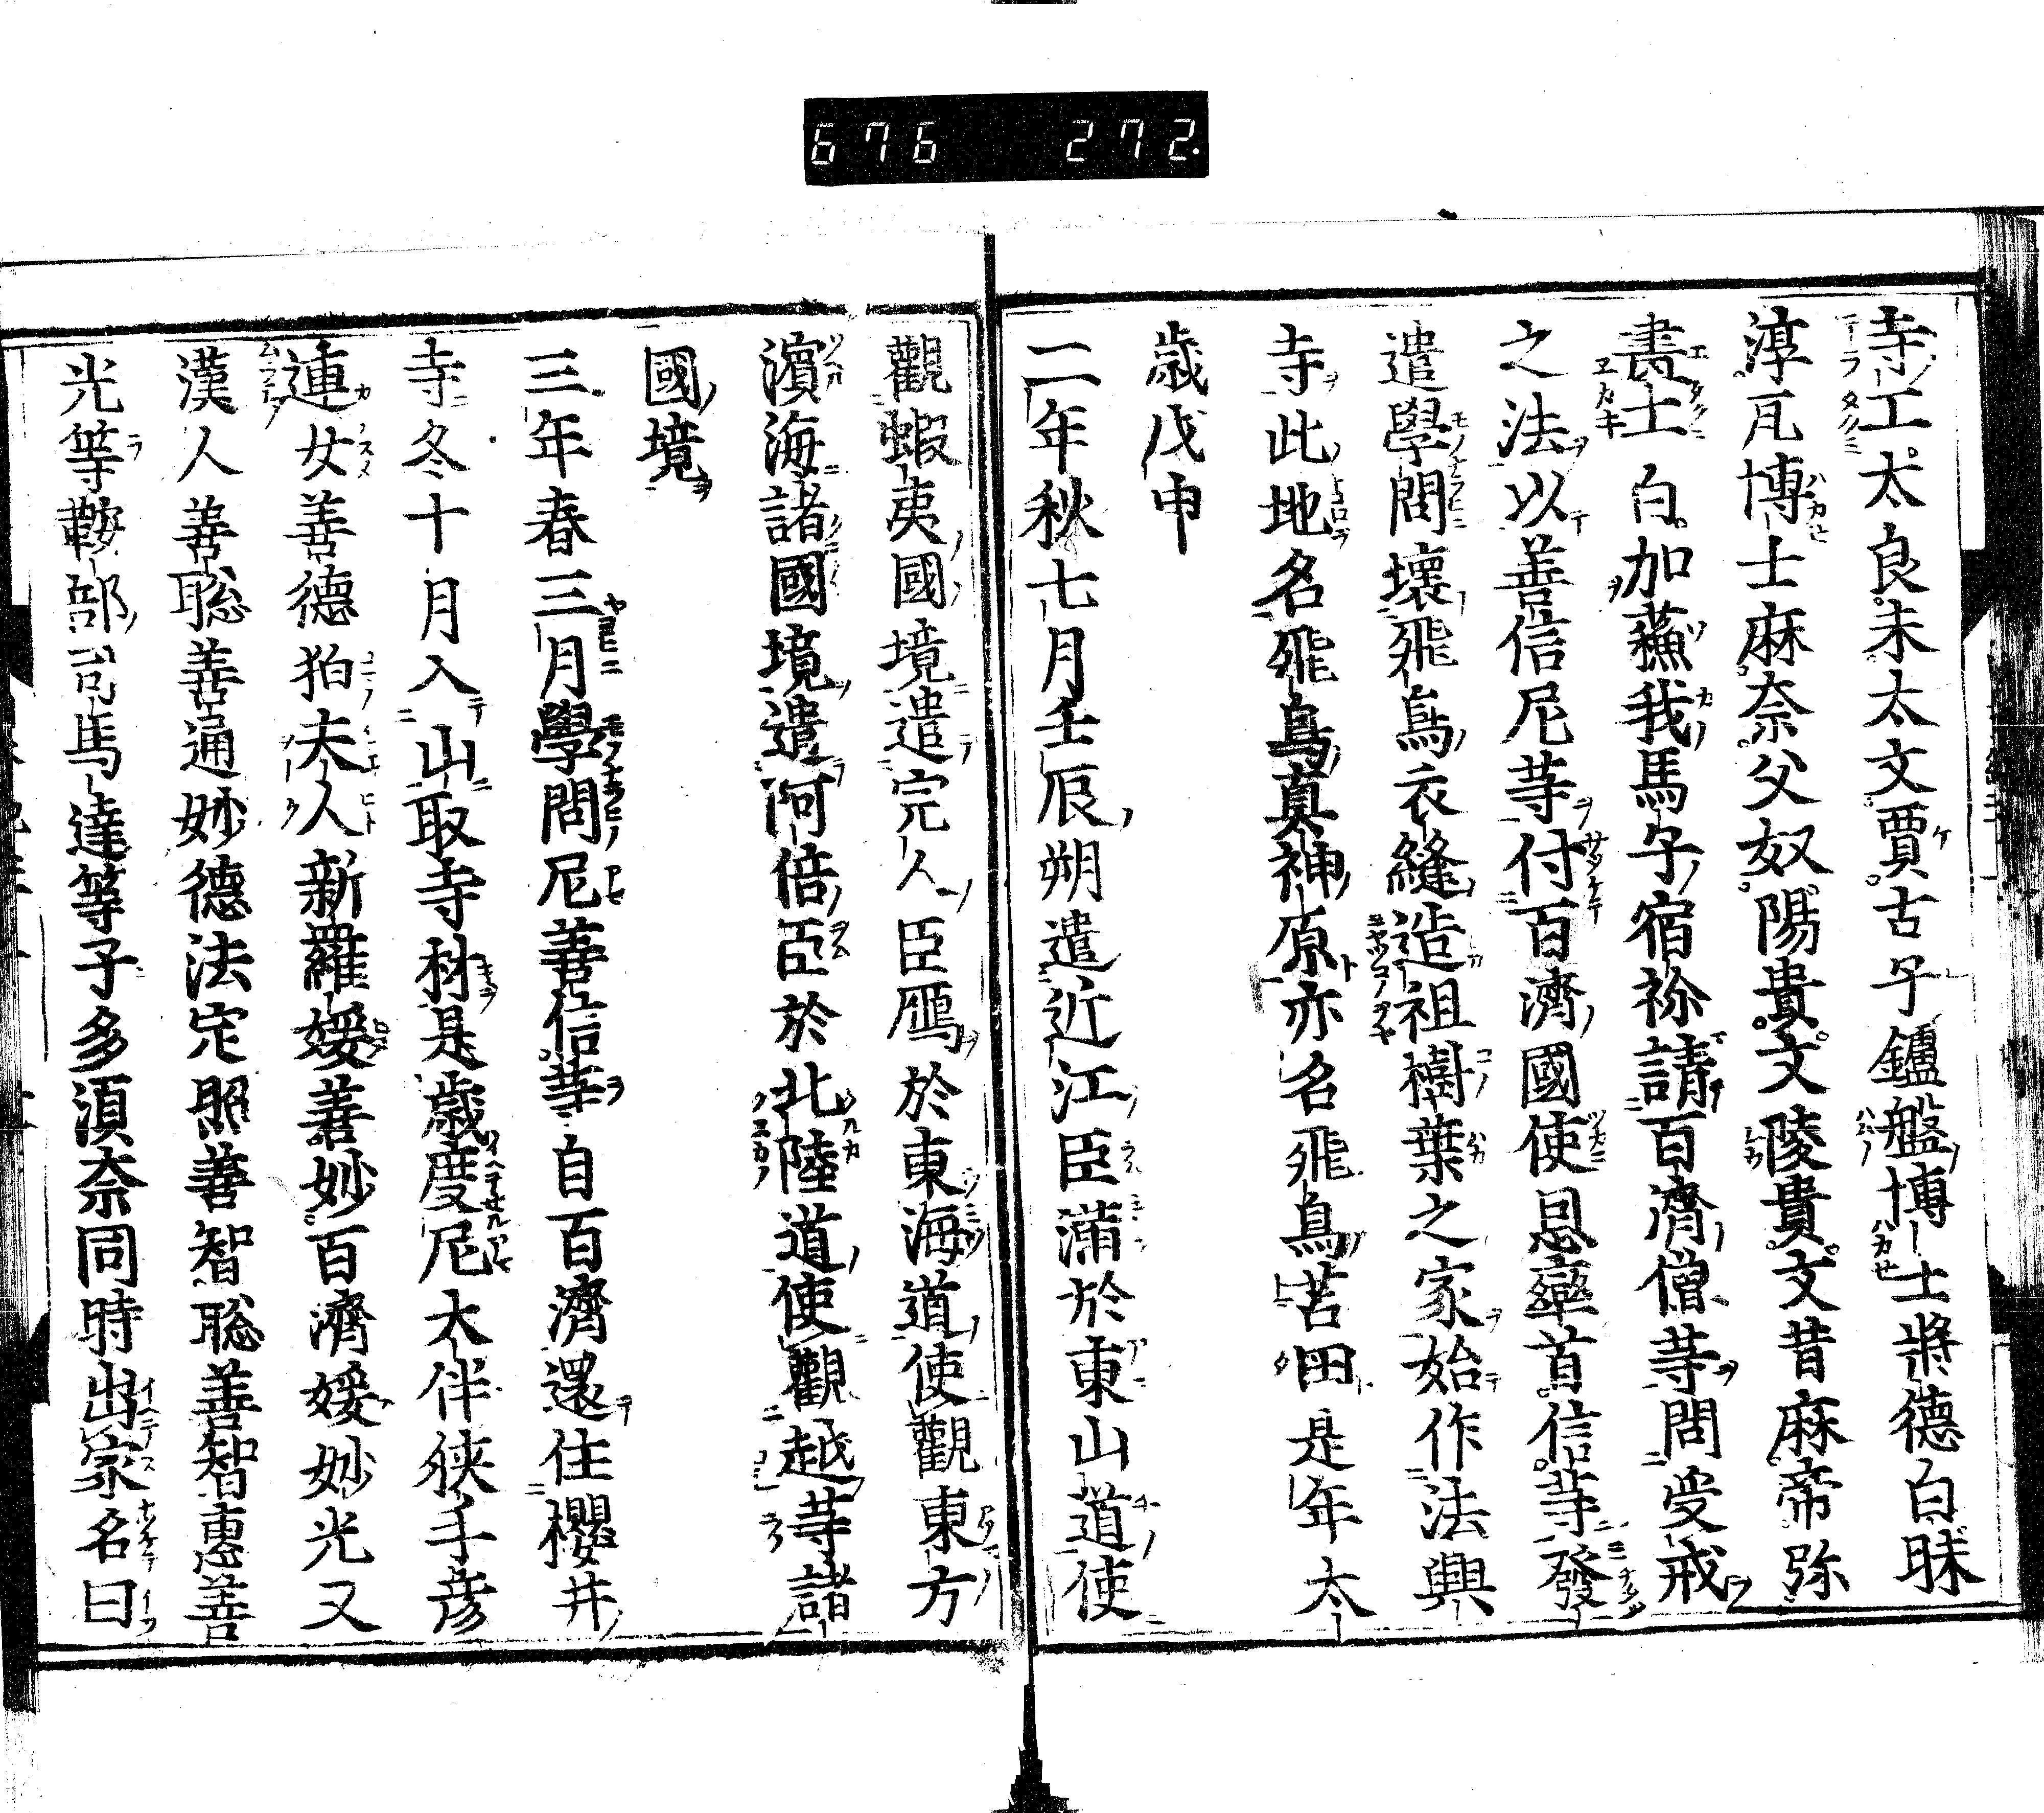 676 272.
寺工太良未太文賈古子鑪盤博士將德白昧
淳瓦博士麻奈父奴陽貴文陵貴文昔麻帝弥
畵士白加蘓我馬子宿祢請百濟僧䓁問受戒
之法以善信尼䓁付百濟國使恩率首信䓁發
遣學問壞飛鳥衣縫造祖樹葉之家始作法興
寺此地名飛鳥真神原亦名飛鳥苫田是年太
歳戊申
二年秋七月壬辰朔遣近江臣滿於東山道使
觀蝦夷國境遣宍人臣鴈於東海道使觀東方
濵海諸國境遣阿倍臣於北陸道使觀越䓁諸
國境
三年春三月學問尼善信䓁自百濟還住櫻井
寺冬十月入山取寺材是歳度尼大伴狹手彦
連女善德狛夫人新羅媛善妙百濟媛妙光又
漢人善聡善通妙德法定照善智聡善智惠善
光等鞍部司馬達等子多湏奈同時出家名曰